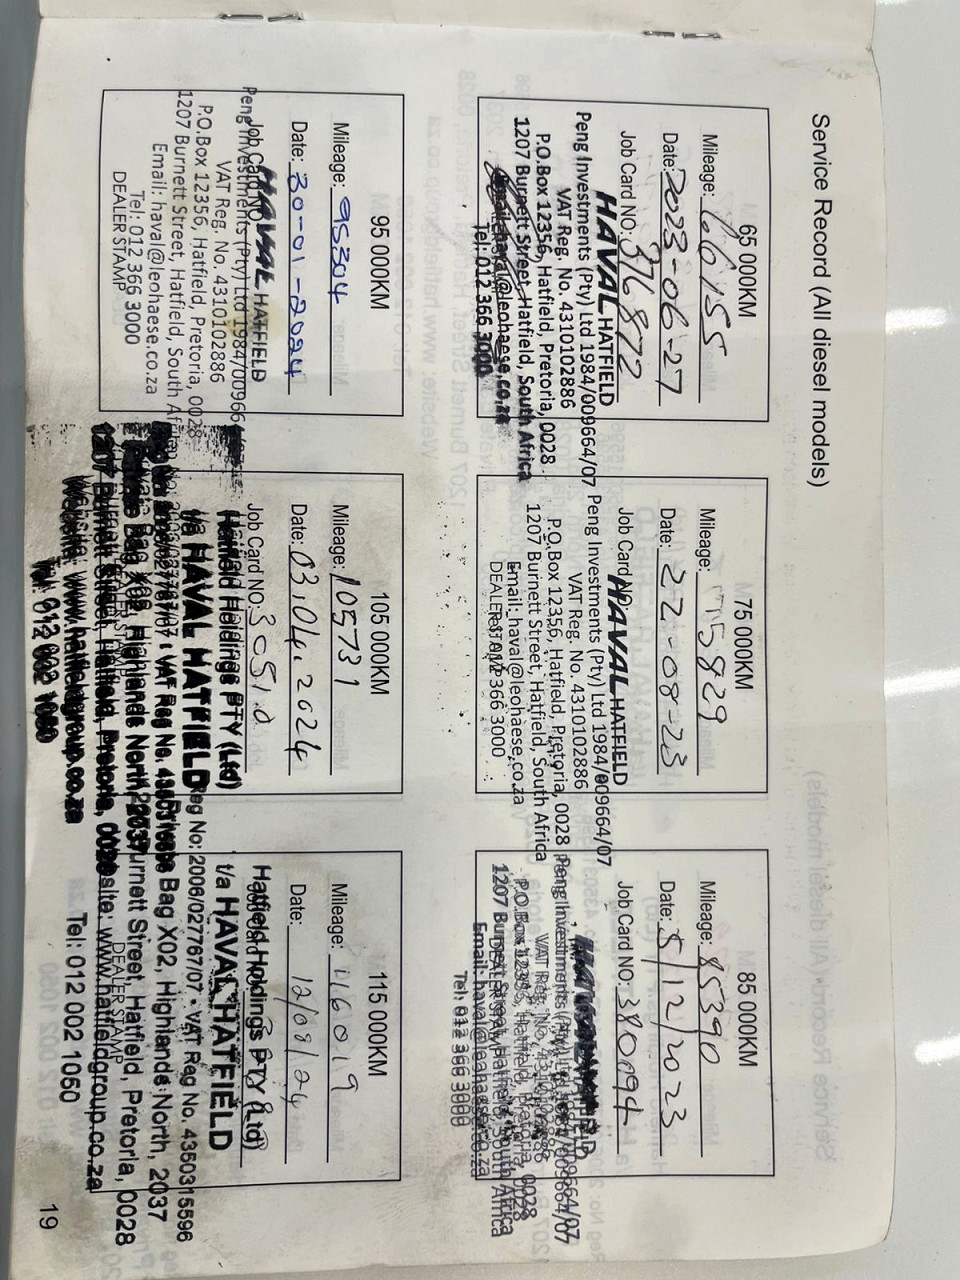 Service Record (All diesel models)
65 000KM
Mileage: 66155
Date: 2023-06-27
Job Card NO: 376872
HAVAL HATFIELD
Peng Investments (Pty) Ltd 1984/009664/07
VAT Reg. No. 4310102886
P.O.Box 12356, Hatfield, Pretoria, 0028
1207 Burnett Street, Hatfield, South Africa
Email: haval@leohaese.co.za
Tel: 012 366 3000
75 000KM
Mileage: 75829
Date: 22-08-23
Job Card NO:
HAVAL HATFIELD
Peng Investments (Pty) Ltd 1984/009664/07
VAT Reg. No. 4310102886
P.O.Box 12356, Hatfield, Pretoria, 0028
1207 Burnett Street, Hatfield, South Africa
Email: haval@leohaese.co.za
DEALER STAMP
Tel: 012 366 3000
85 000KM
Mileage: 85390
Date: 5/12/2023
Job Card NO: 380094
Peng Investments (Pty) Ltd 1984/009664/07
VAT Reg. No. 4310102886
P.O.Box 12356, Hatfield, Pretoria, 0028
1207 Burnett Street, Hatfield, South Africa
DEALER STAMP
Email: haval@leohaese.co.za
Tel: 012 366 3000
95 000KM
Mileage: 95304
Date: 30-01-2024
Job Card NO:
HAVAL HATFIELD
Peng Investments (Pty) Ltd 1984/00966
VAT Reg. No. 4310102886
P.O.Box 12356, Hatfield, Pretoria, 0028
1207 Burnett Street, Hatfield, South
Email: haval@leohaese.co.za
Tel: 012 366 3000
DEALER STAMP
105 000KM
Mileage: 105731
Date: 03.04.2024
Job Card NO: 3051.0
Hatfield Holdings PTY (Ltd)
t/a HAVAL HATFIELD
VAT Reg No.
Bag X02, Highlands North, 2037
1207 Burnett Street, Hatfield, Pretoria, 0028
Website: www.hatfieldgroup.co.za
Tel: 012 002 1060
115 000KM
Mileage: 116019
Date: 12/08/24
Hatfield Holdings PTY (Ltd)
t/a HAVAL HATFIELD
Reg No: 2006/027767/07 - VAT Reg No. 4350315596
Private Bag X02, Highlands North, 2037
Burnett Street, Hatfield, Pretoria, 0028
DEALER STAMP
Website: www.hatfieldgroup.co.za
Tel: 012 002 1060
19